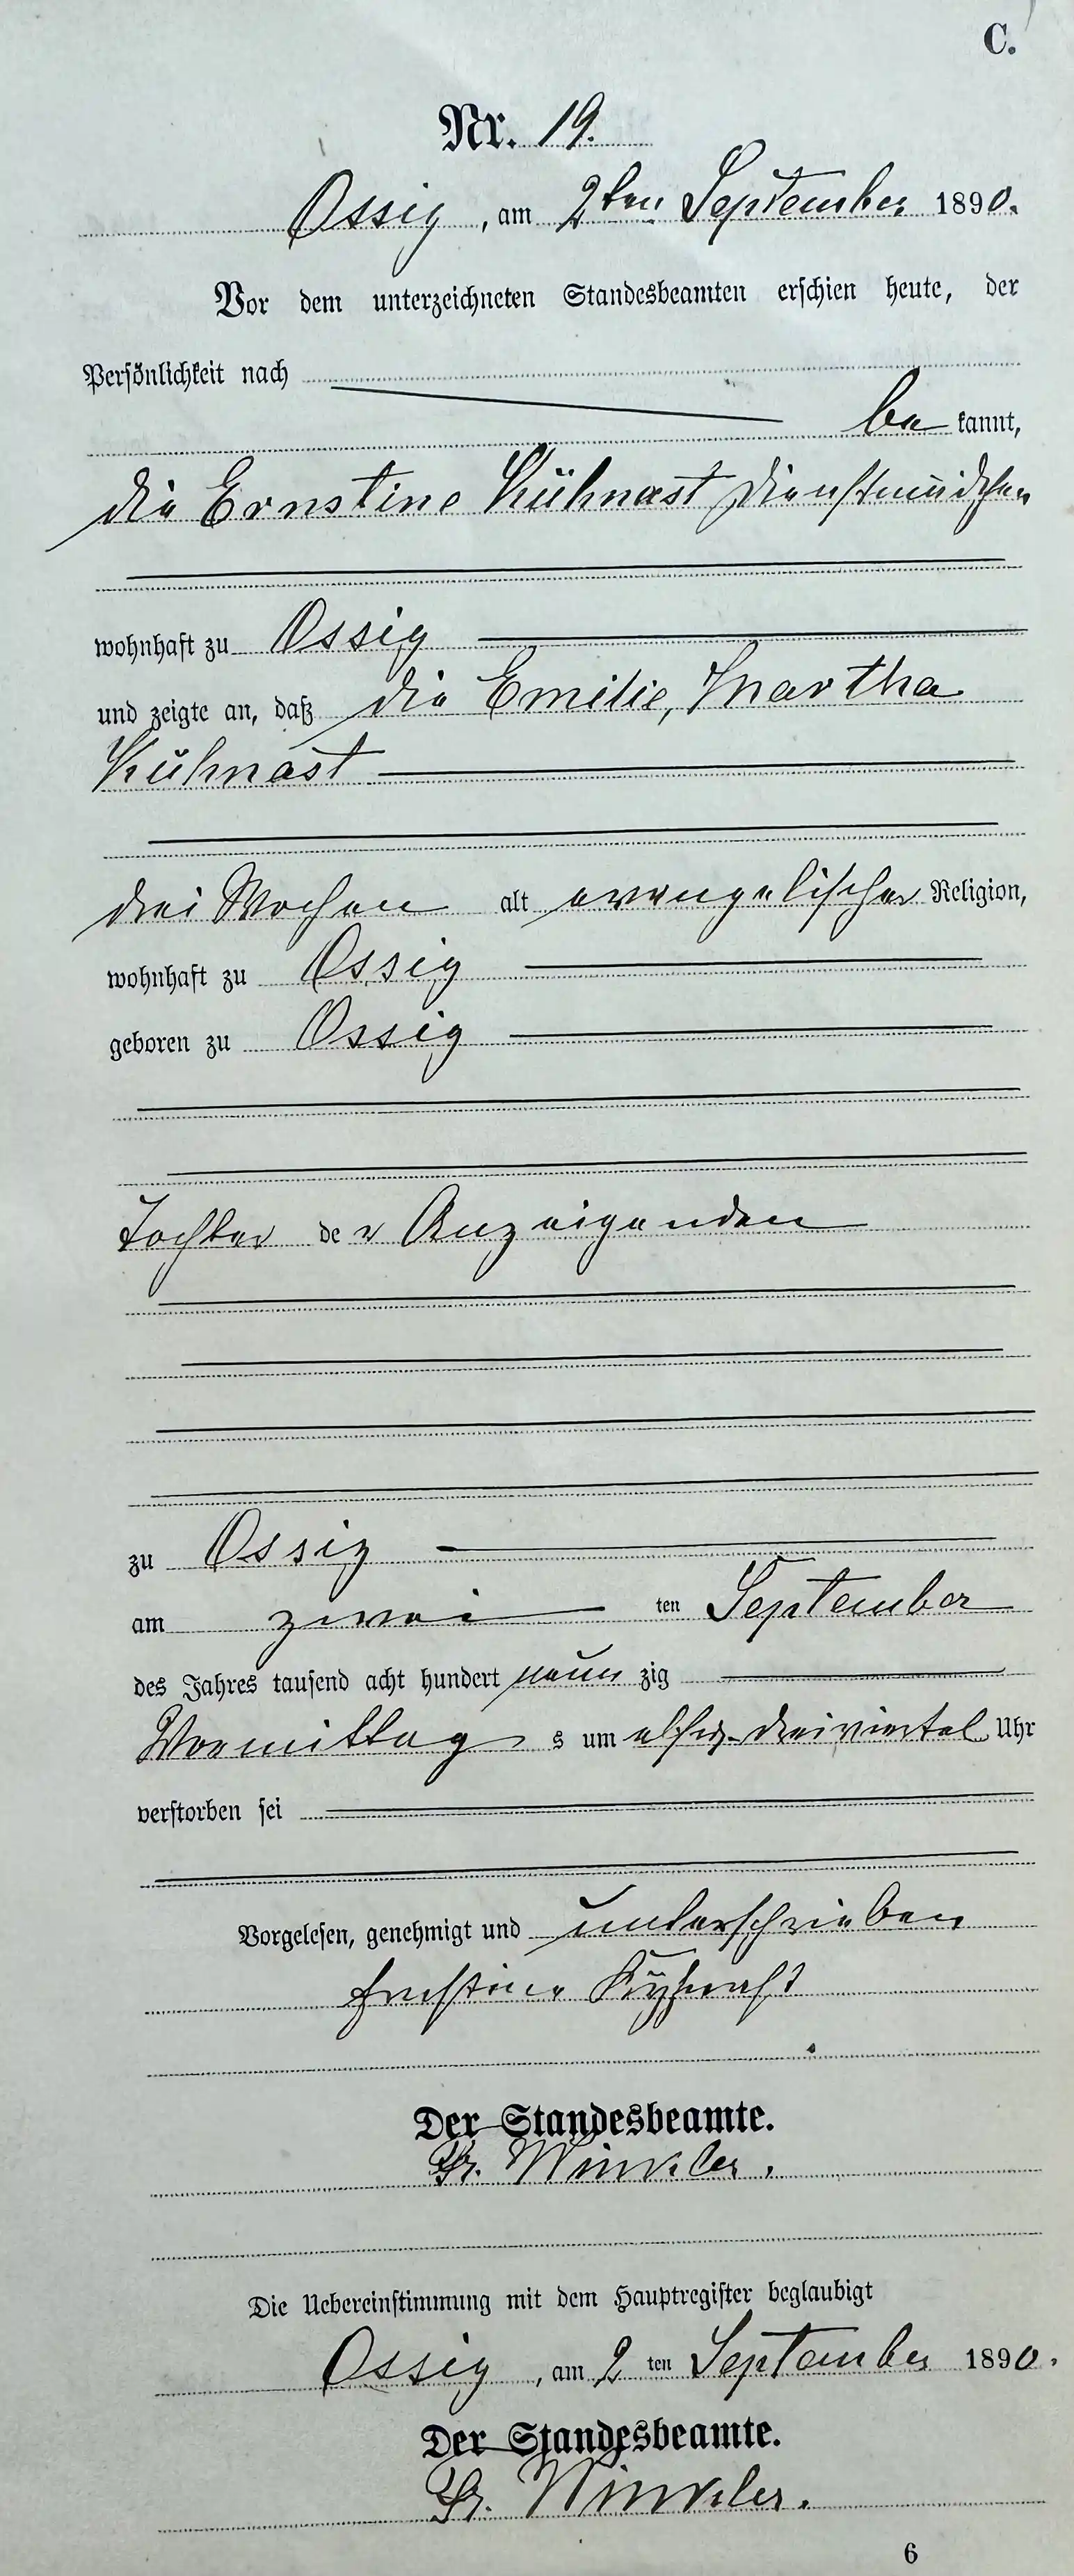 C.
Nr. 19.
Ossig, am 2ten September 1890.
Vor dem unterzeichneten Standesbeamten erschien heute, der
Persönlichkeit nach
be kannt,
die Ernstine Kühnast Dienstmädchen
wohnhaft zu Ossig
und zeigte an, daß die Emilie, Martha
Kühnast
drei Wochen alt evangelischer Religion,
wohnhaft zu Ossig
geboren zu Ossig
Tochter de r Anzeigenden
zu Ossig
am zwei ten September
des Jahres tausend acht hundert neun zig
Vormittag s um dreiviertel Uhr
verstorben sei
Vorgelesen, genehmigt und unterschrieben
Ernstine
Der Standesbeamte.
Winkler.
Die Uebereinstimmung mit dem Hauptregister beglaubigt
Ossig, am 2 ten September 1890.
Der Standesbeamte.
Winkler.
6